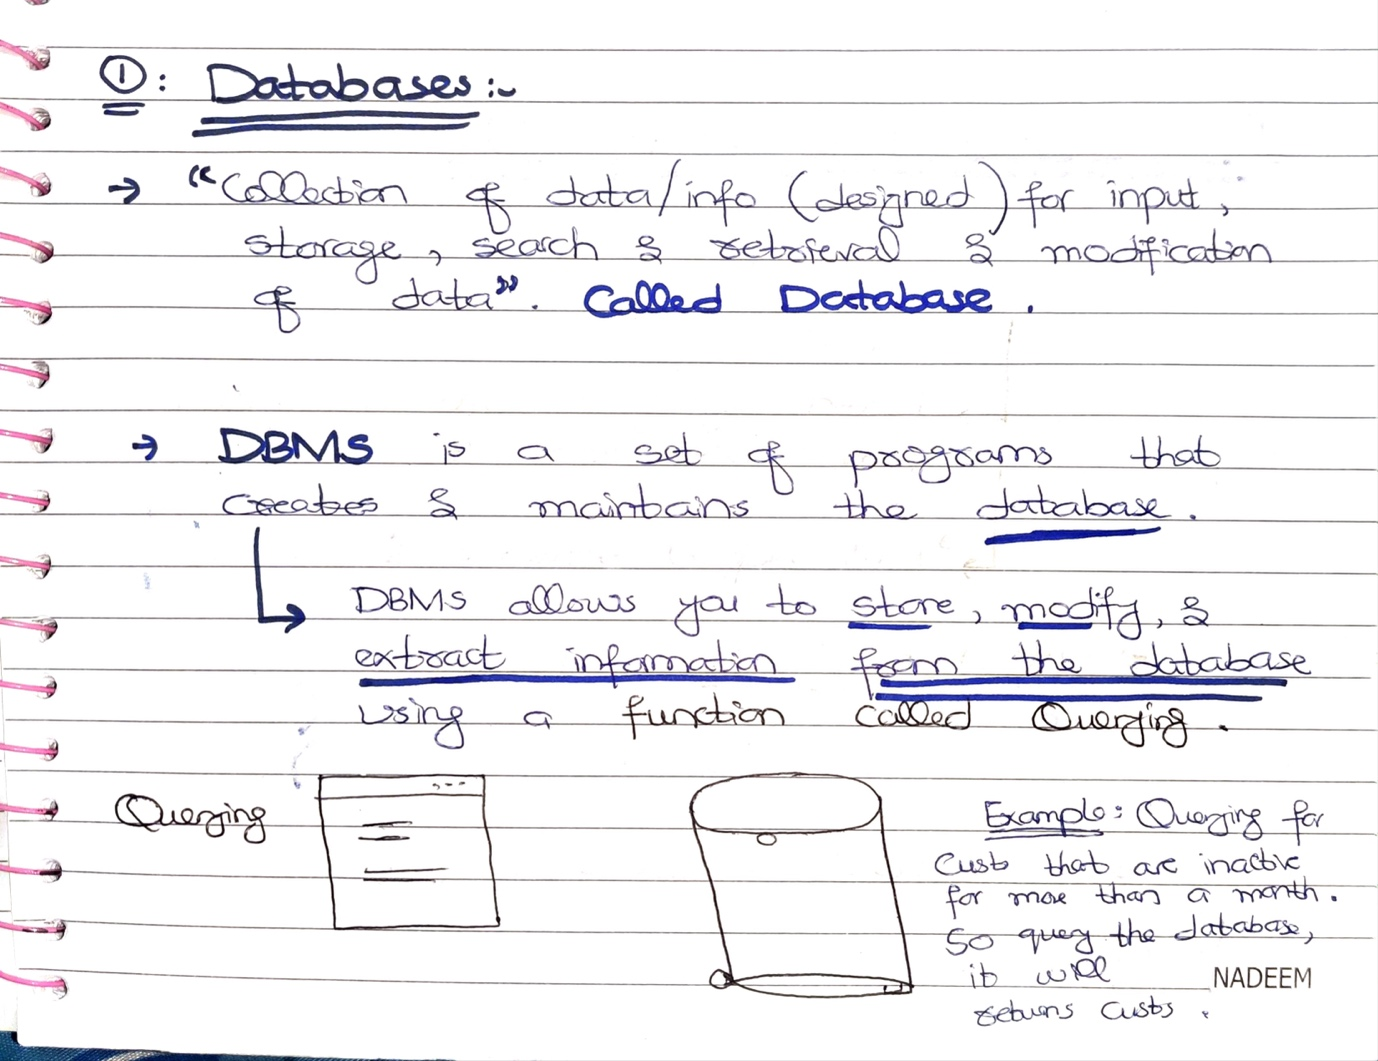 ①: Databases :~
→ "Collection of data/info (designed) for input,
storage, search & retrieval & modification
of data". Called Database.
→ DBMS is a set of programs that
creates & maintains the database.
DBMS allows you to store, modify, &
extract information from the database
using a function called Querying.
Querying
Example: Querying for
Cust that are inactive
for more than a month.
So query the database,
it will
returns custs.
NADEEM